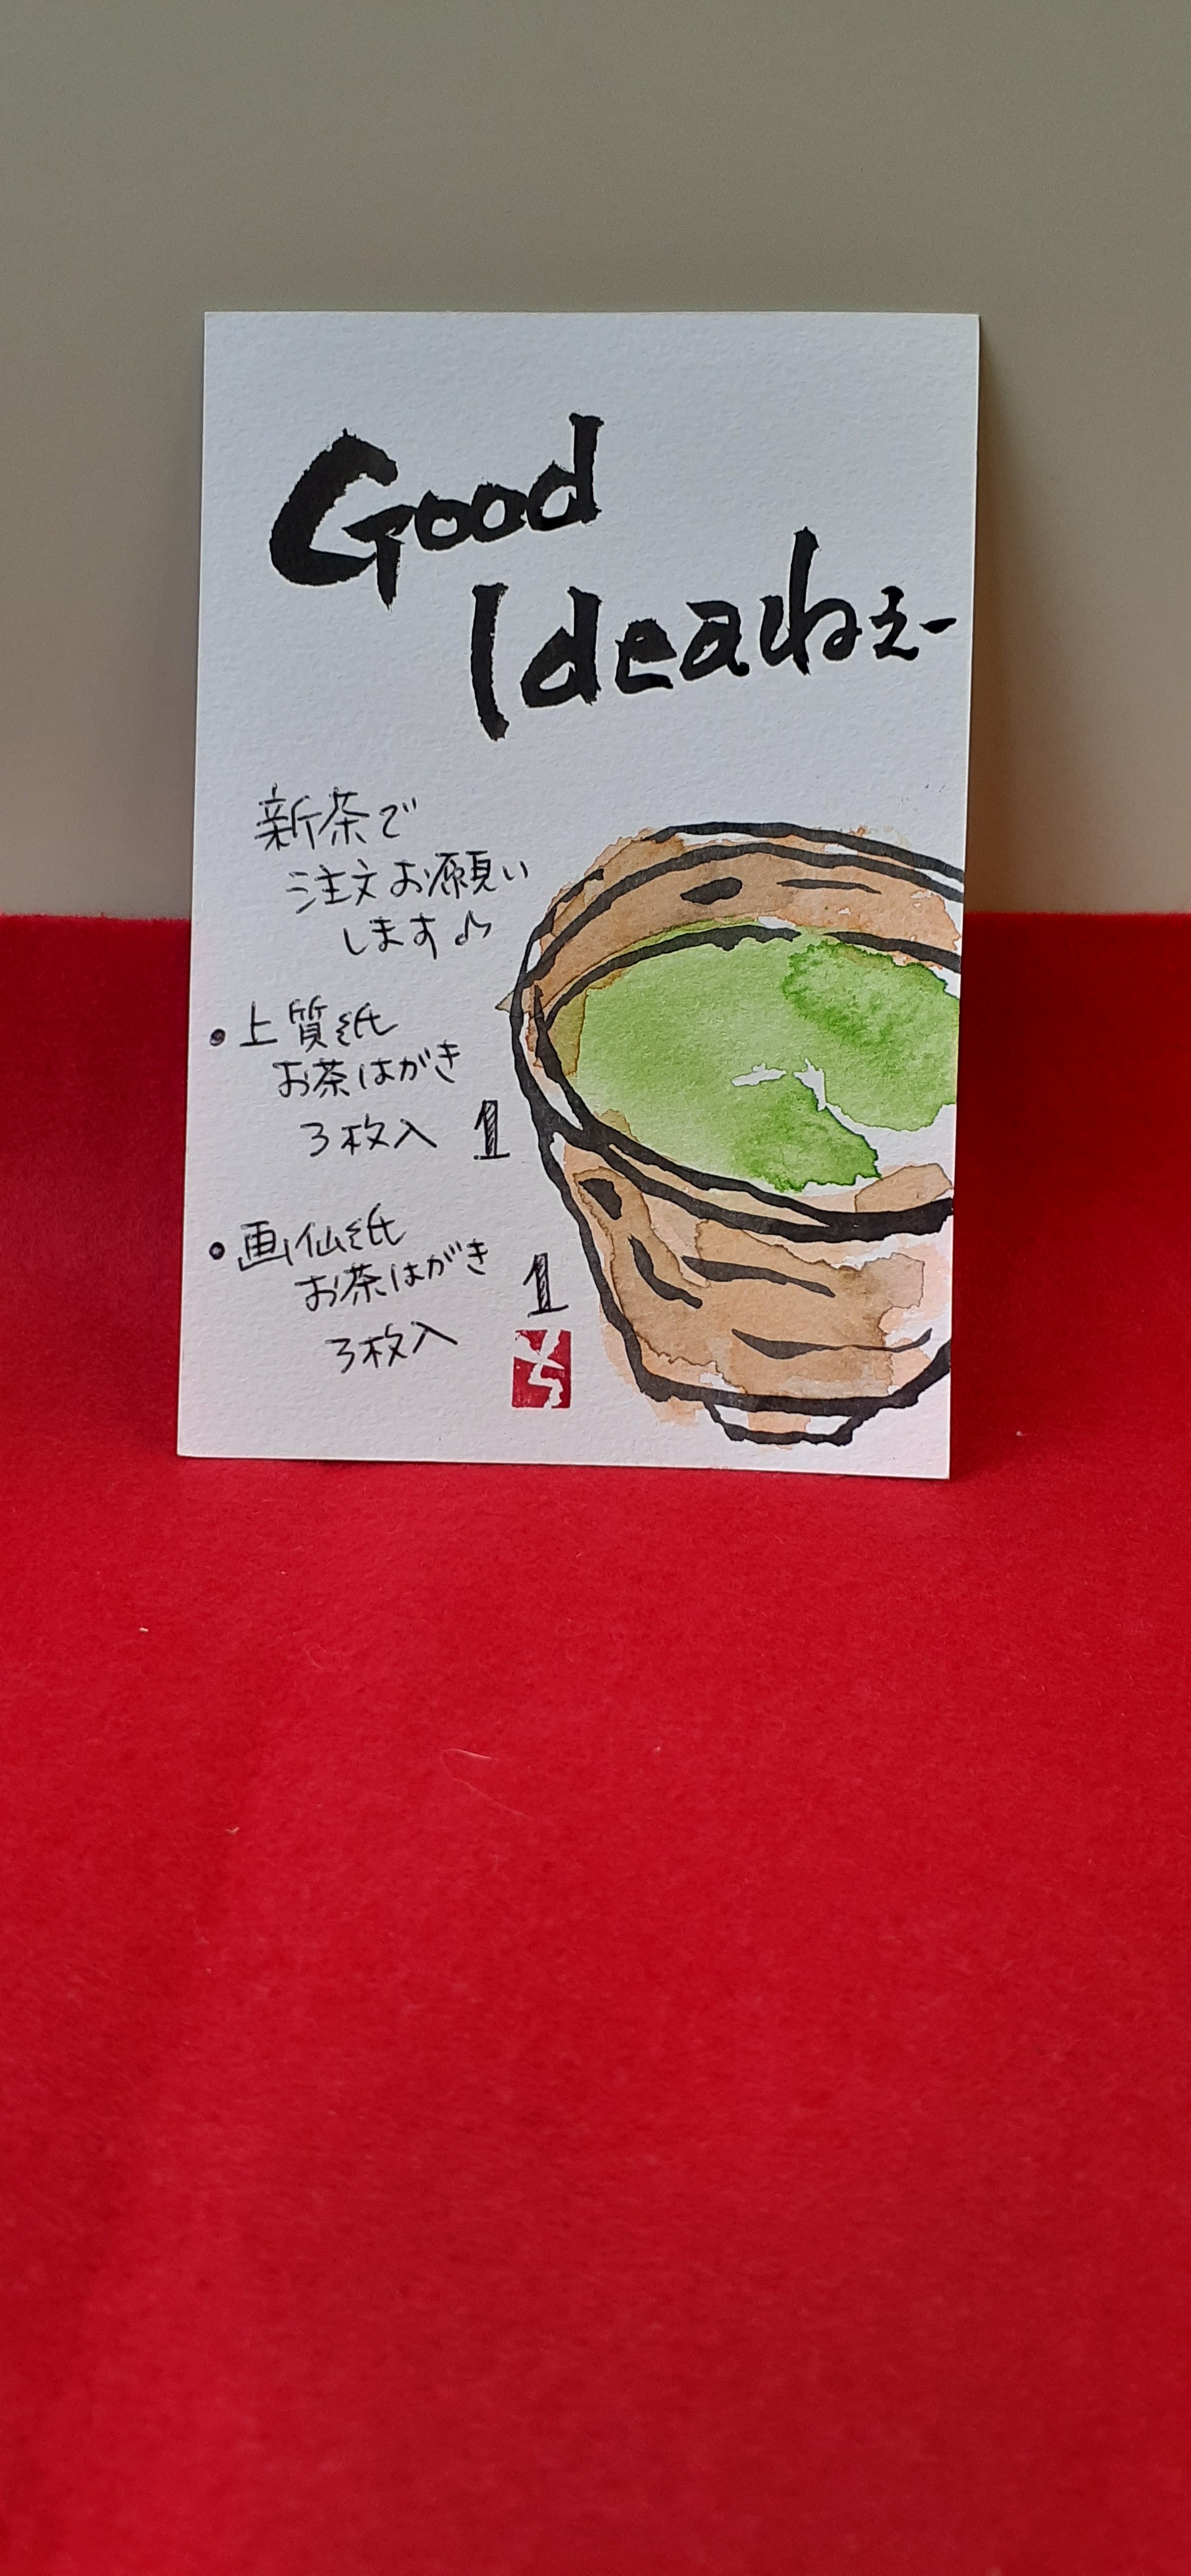 Good
Ideaねぇー
新茶で
注文お願い
します♪
・上質紙
お茶はがき
3枚入 1
・画仙紙
お茶はがき 1
3枚入